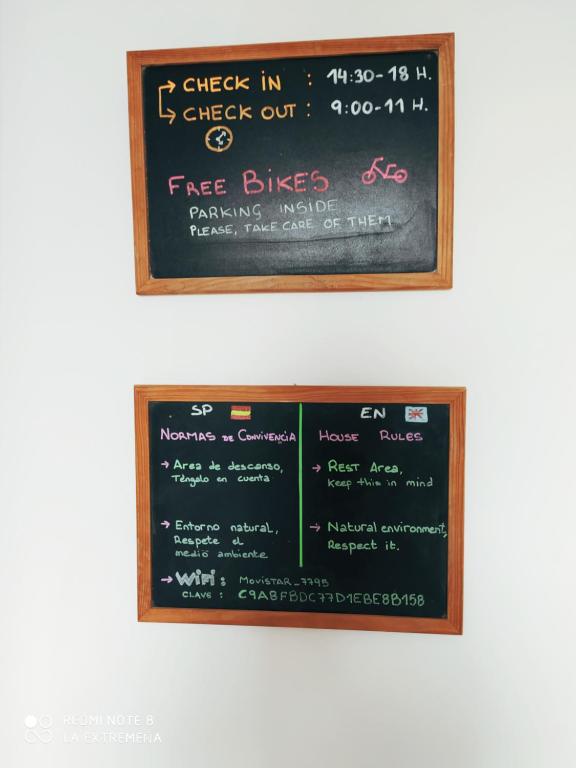 CHECK iN : 14:30-18 H.
CHECK OUT : 9:00-11 H.
FREE BiKES
PARKING INSIDE
PLEASE, TAKE CARE OF THEM
SP
NORMAS DE CONVIVENCIA
→ Area de descanso,
Téngalo en cuenta
→ Entorno natural,
Respete el
medio ambiente
EN
HOUSE RULES
→ REST Area,
Keep this in mind
→ Natural environment,
Respect it.
→ WiFi : MOVISTAR_7795
CLAVE : C9A8FBDC77D1EBE8B158
REDMI NOTE 8
LA EXTREMEÑA